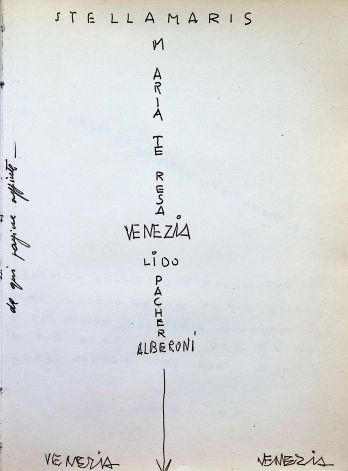 STELLAMARIS
M
ARIA
TE
RESA
VENEZIA
LIDO
PACHER
ALBERONI
VENEZIA VENEZIA
da qui pagine